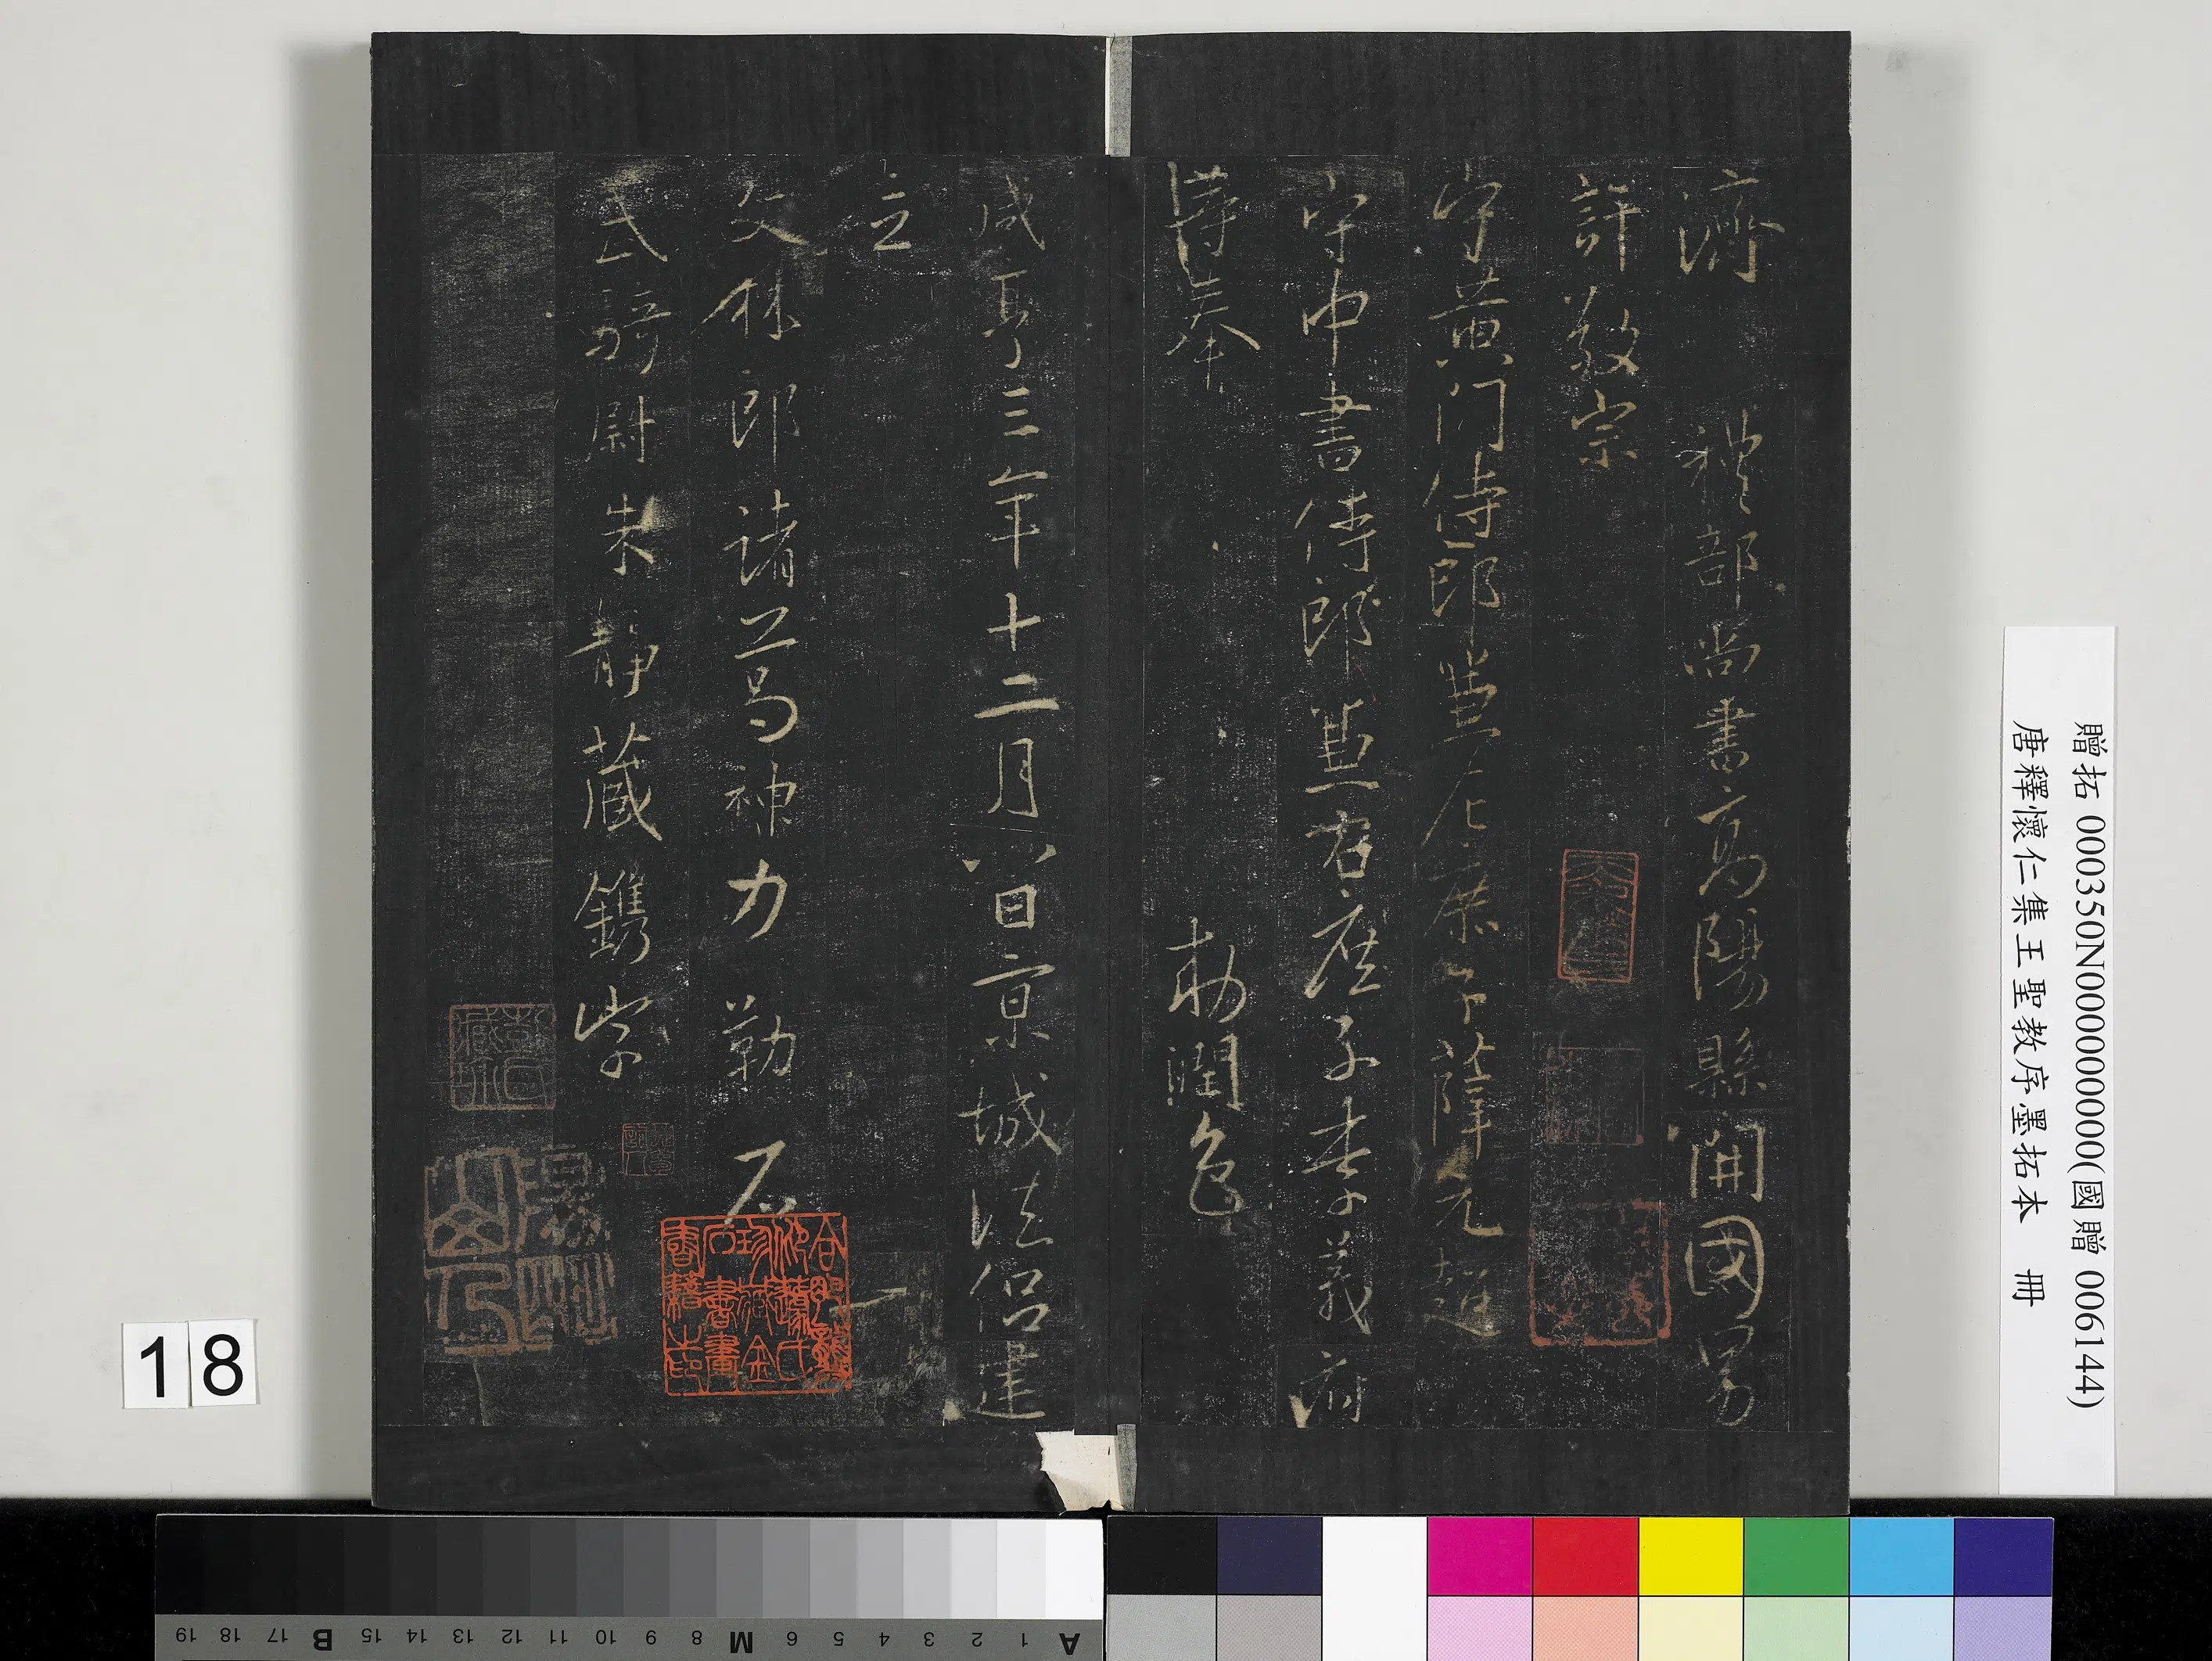 濟　禮部尚書高陽縣開國男
許敬宗
守黃門侍郎兼左庶子薛元超
守中書侍郎兼右庶子李義府
等奉　勅潤色
咸亨三年十二月八日京城法侶建
立
文林郎諸葛神力勒石
武騎尉朱靜藏鐫字
贈拓 000350N000000000(國贈 006144)
唐釋懷仁集王聖教序墨拓本　冊
18
A 1 2 3 4 5 6 M 8 9 10 11 12 13 14 15 B 17 18 19